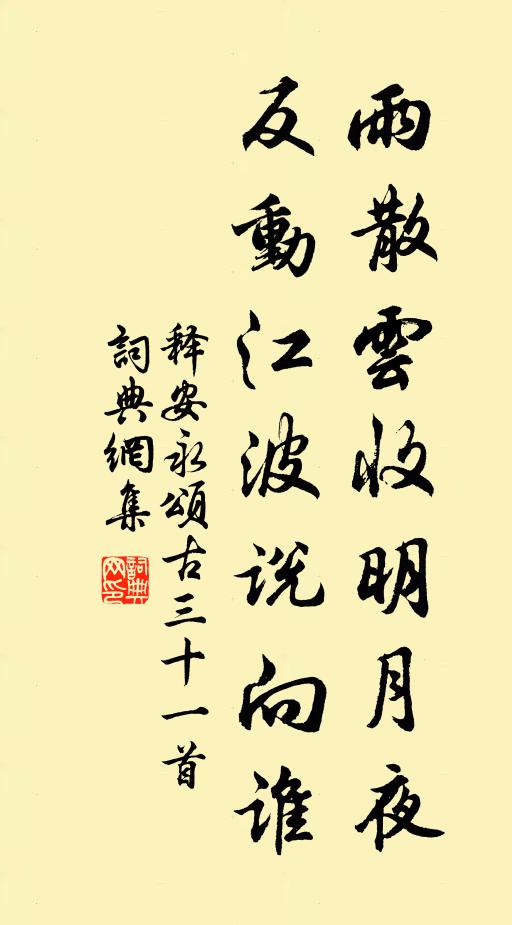 雨散雲收明月夜
反動江波説向誰
释安永頌古三十一首
詞典網集
詞典网印